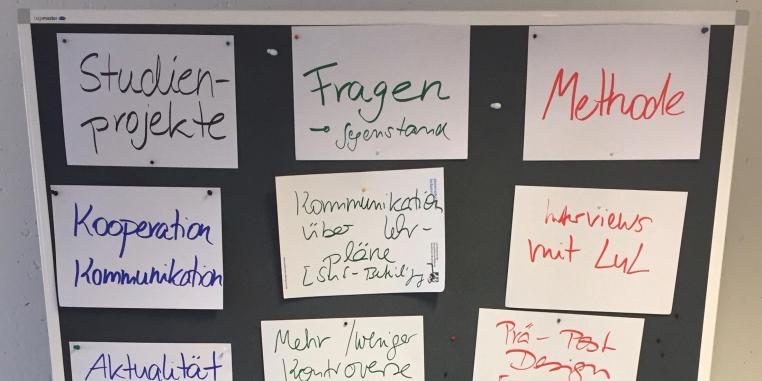 Studien-
projekte
Fragen
→ Gegenstand
Methode
Kooperation
Kommunikation
Kommunikation
über Lehr-
pläne
Interviews
mit LuL
Aktualität
Mehr / weniger
Kontroverse
Prä - Post
Design